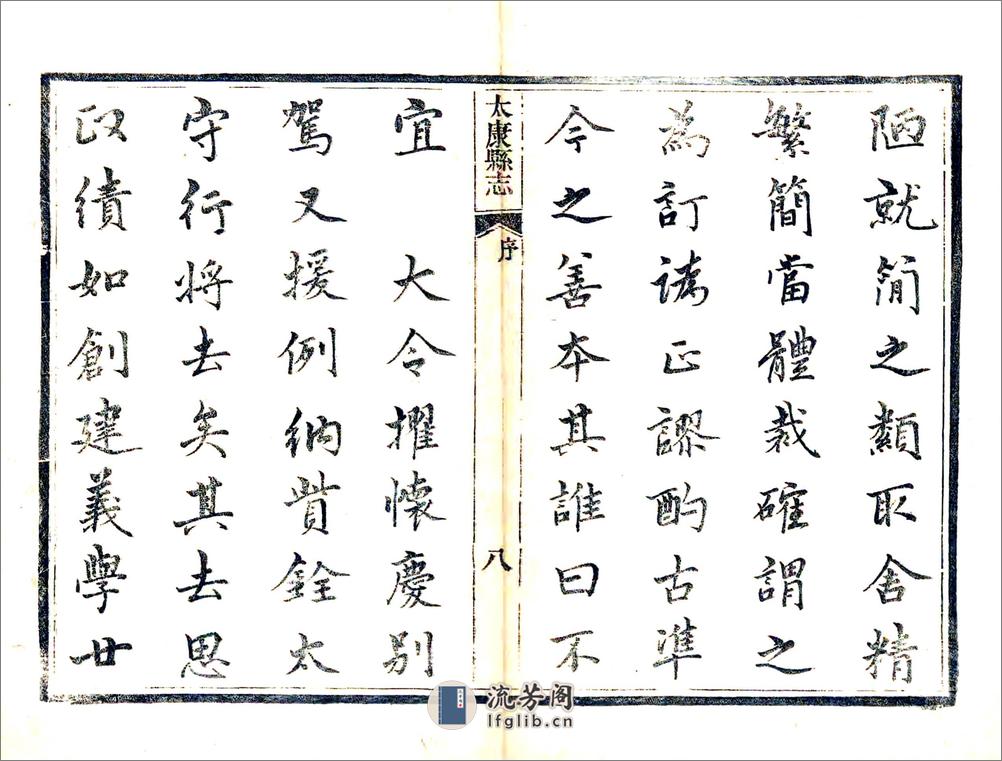 陋就簡之纇取舍精
繁簡當體裁確謂之
為訂譌正謬酌古準
今之善本其誰曰不
太康縣志
序
八
宜 大令擢懷慶別
駕又援例納貲銓太
守行將去矣其去思
政績如創建義學廿
流芳阁
lfglib.cn